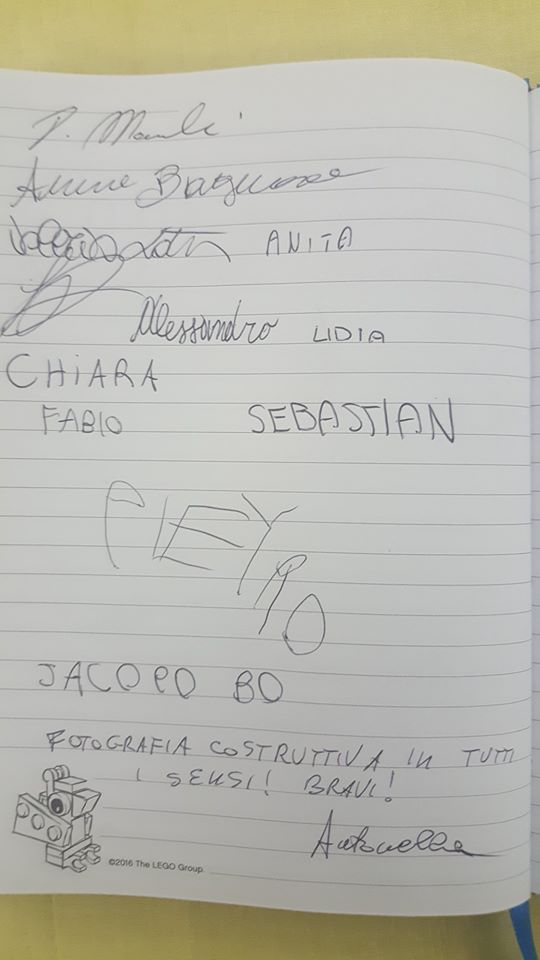 ANITA
Alessandro LIDIA
CHIARA
FABIO SEBASTIAN
PIEYRO
JACOPO BO
FOTOGRAFIA COSTRUTTIVA IN TUTTI
I SENSI! BRAVI!
Antonella
©2016 The LEGO Group.